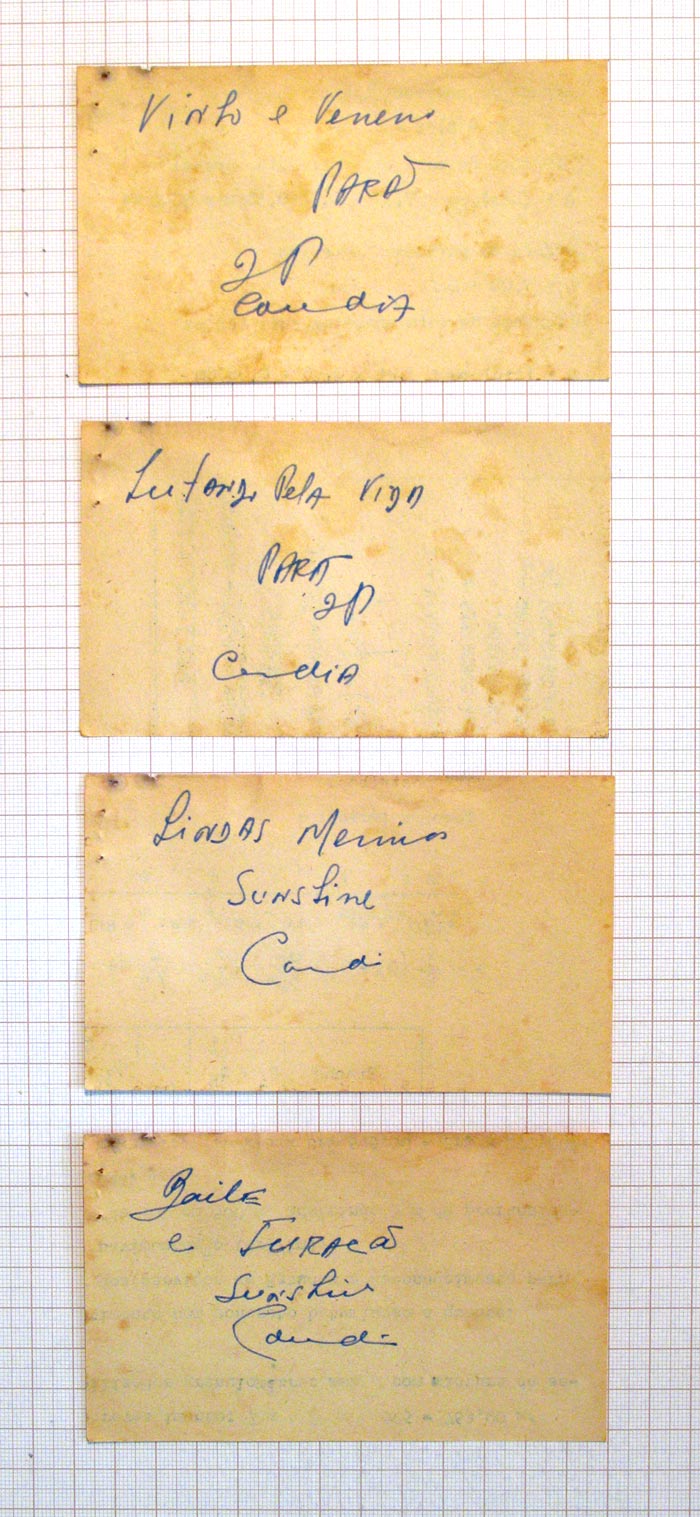 Vinho e Veneno
PARA
JP
Candia
Lutando Pela Vida
PARA
JP
Candia
LINDAS Meninas
Sunshine
Candi
Baile
e FURACÃ
Sunshine
Candi